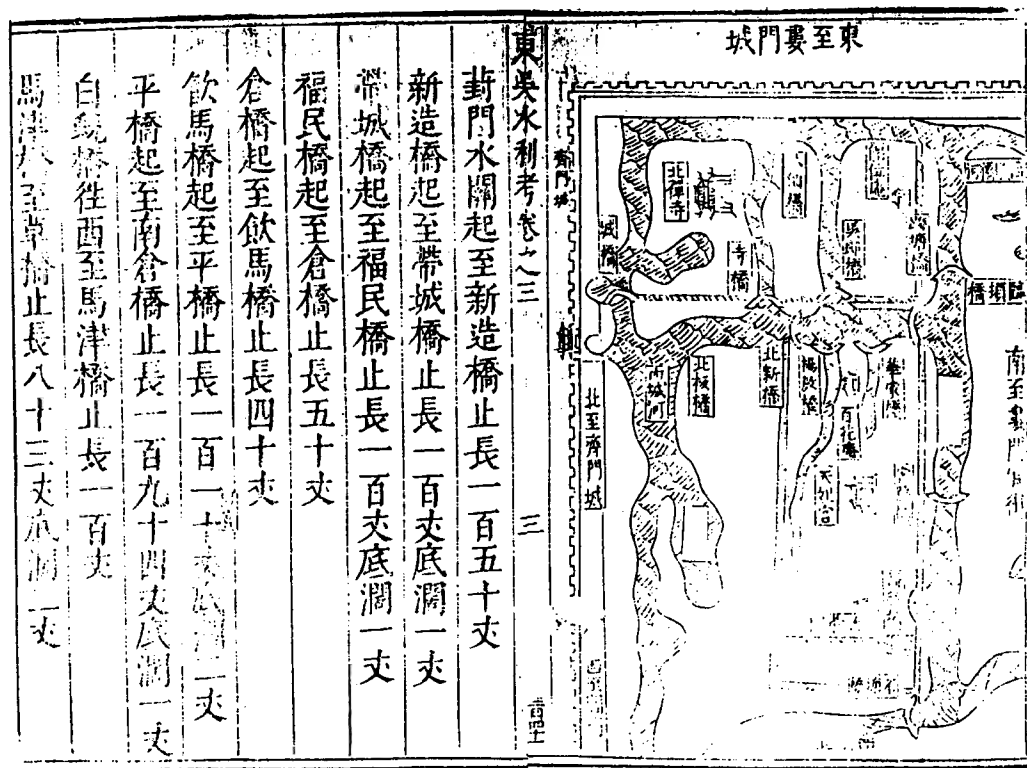 東至婁門城
臨頓橋
南至婁門官街
華家橋
百花庵
天妃宮
北新橋
寺橋
北禪寺
北板橋
城橋
北至齊門城
齊門城
東吳水利考卷之三
三
葑門水關起至新造橋止長一百五十丈
新造橋起至帶城橋止長一百丈底濶一丈
帶城橋起至福民橋止長一百丈底濶一丈
福民橋起至倉橋止長五十丈
倉橋起至飲馬橋止長四十丈
飲馬橋起至平橋止長一百一十丈底濶二丈
平橋起至南倉橋止長一百九十四丈底濶一丈
白蜆橋徃西至馬津橋止長一百丈
馬津橋至草橋止長八十三丈底濶一丈